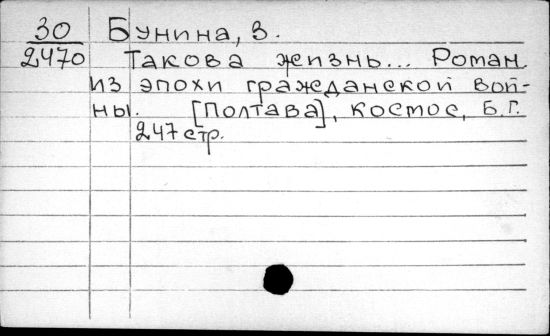 30 Бунина, З.
2470 Такова жизнь... Роман
из эпохи гражданской вой-
ны. [Полтава], Космос, Б.Г.
247 стр.